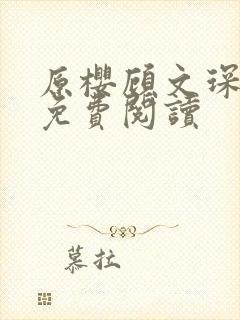 原櫻顧文琛
免費閱讀
慕拉